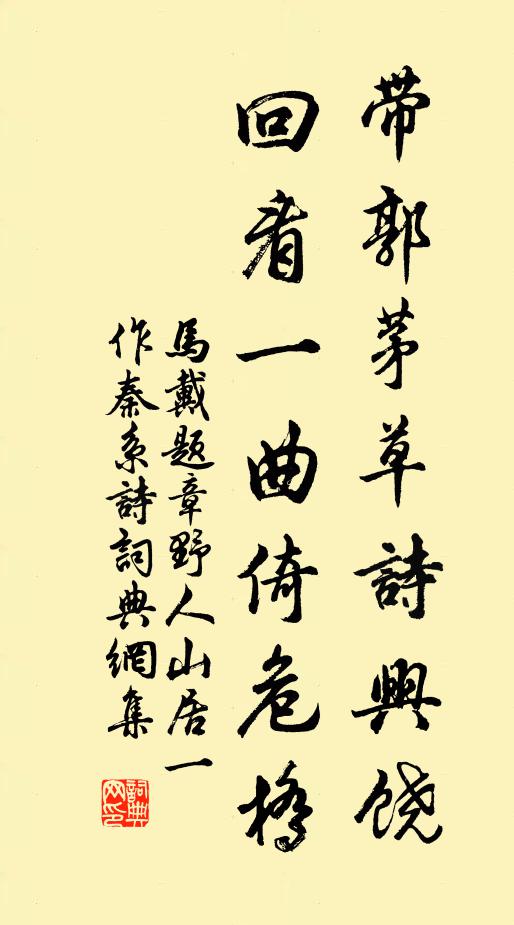 帶郭茅草詩興饒
回看一曲倚危橋
馬戴題章野人山居一
作秦系詩詞典網集
詞典網印